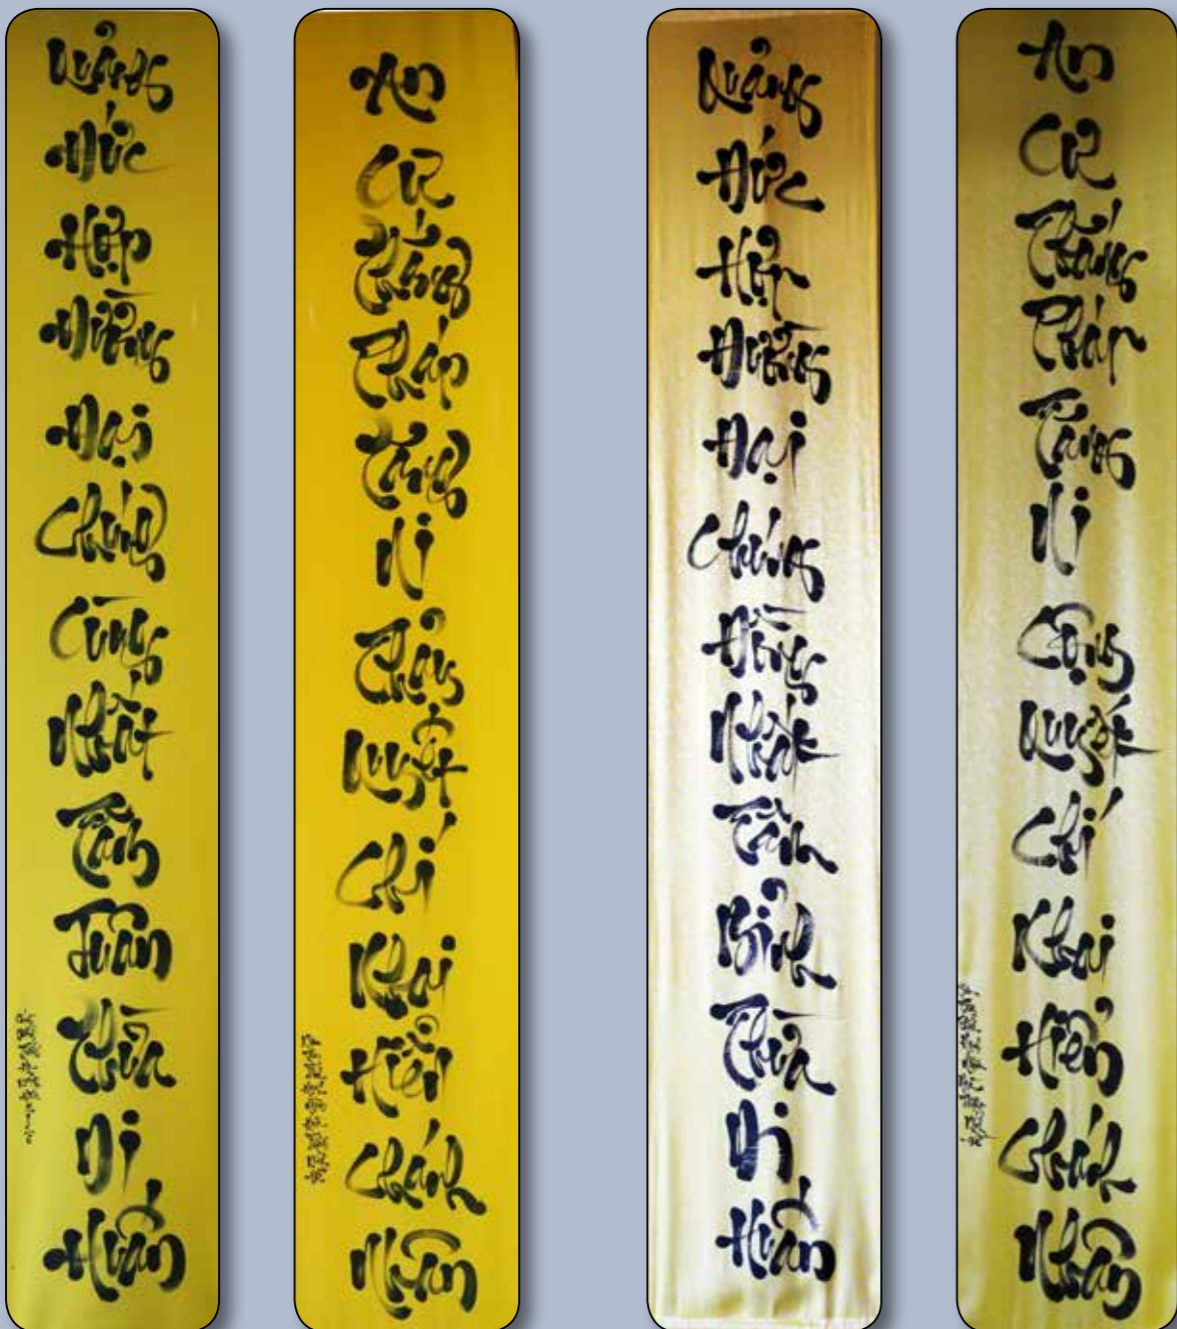 Quảng Đức Hợp Đường Đại Chúng Cùng Nhất Tâm Tuân Thừa Di Huấn
An Cư Thắng Pháp Tăng Ni Thảy Quyết Chí Khai Hiển Chánh Nhân
Quảng Đức Hợp Đường Đại Chúng Đồng Nhất Tâm Bỉnh Thừa Di Huấn
An Cư Thắng Pháp Tăng Ni Cộng Quyết Chí Khai Hiển Chánh Nhân